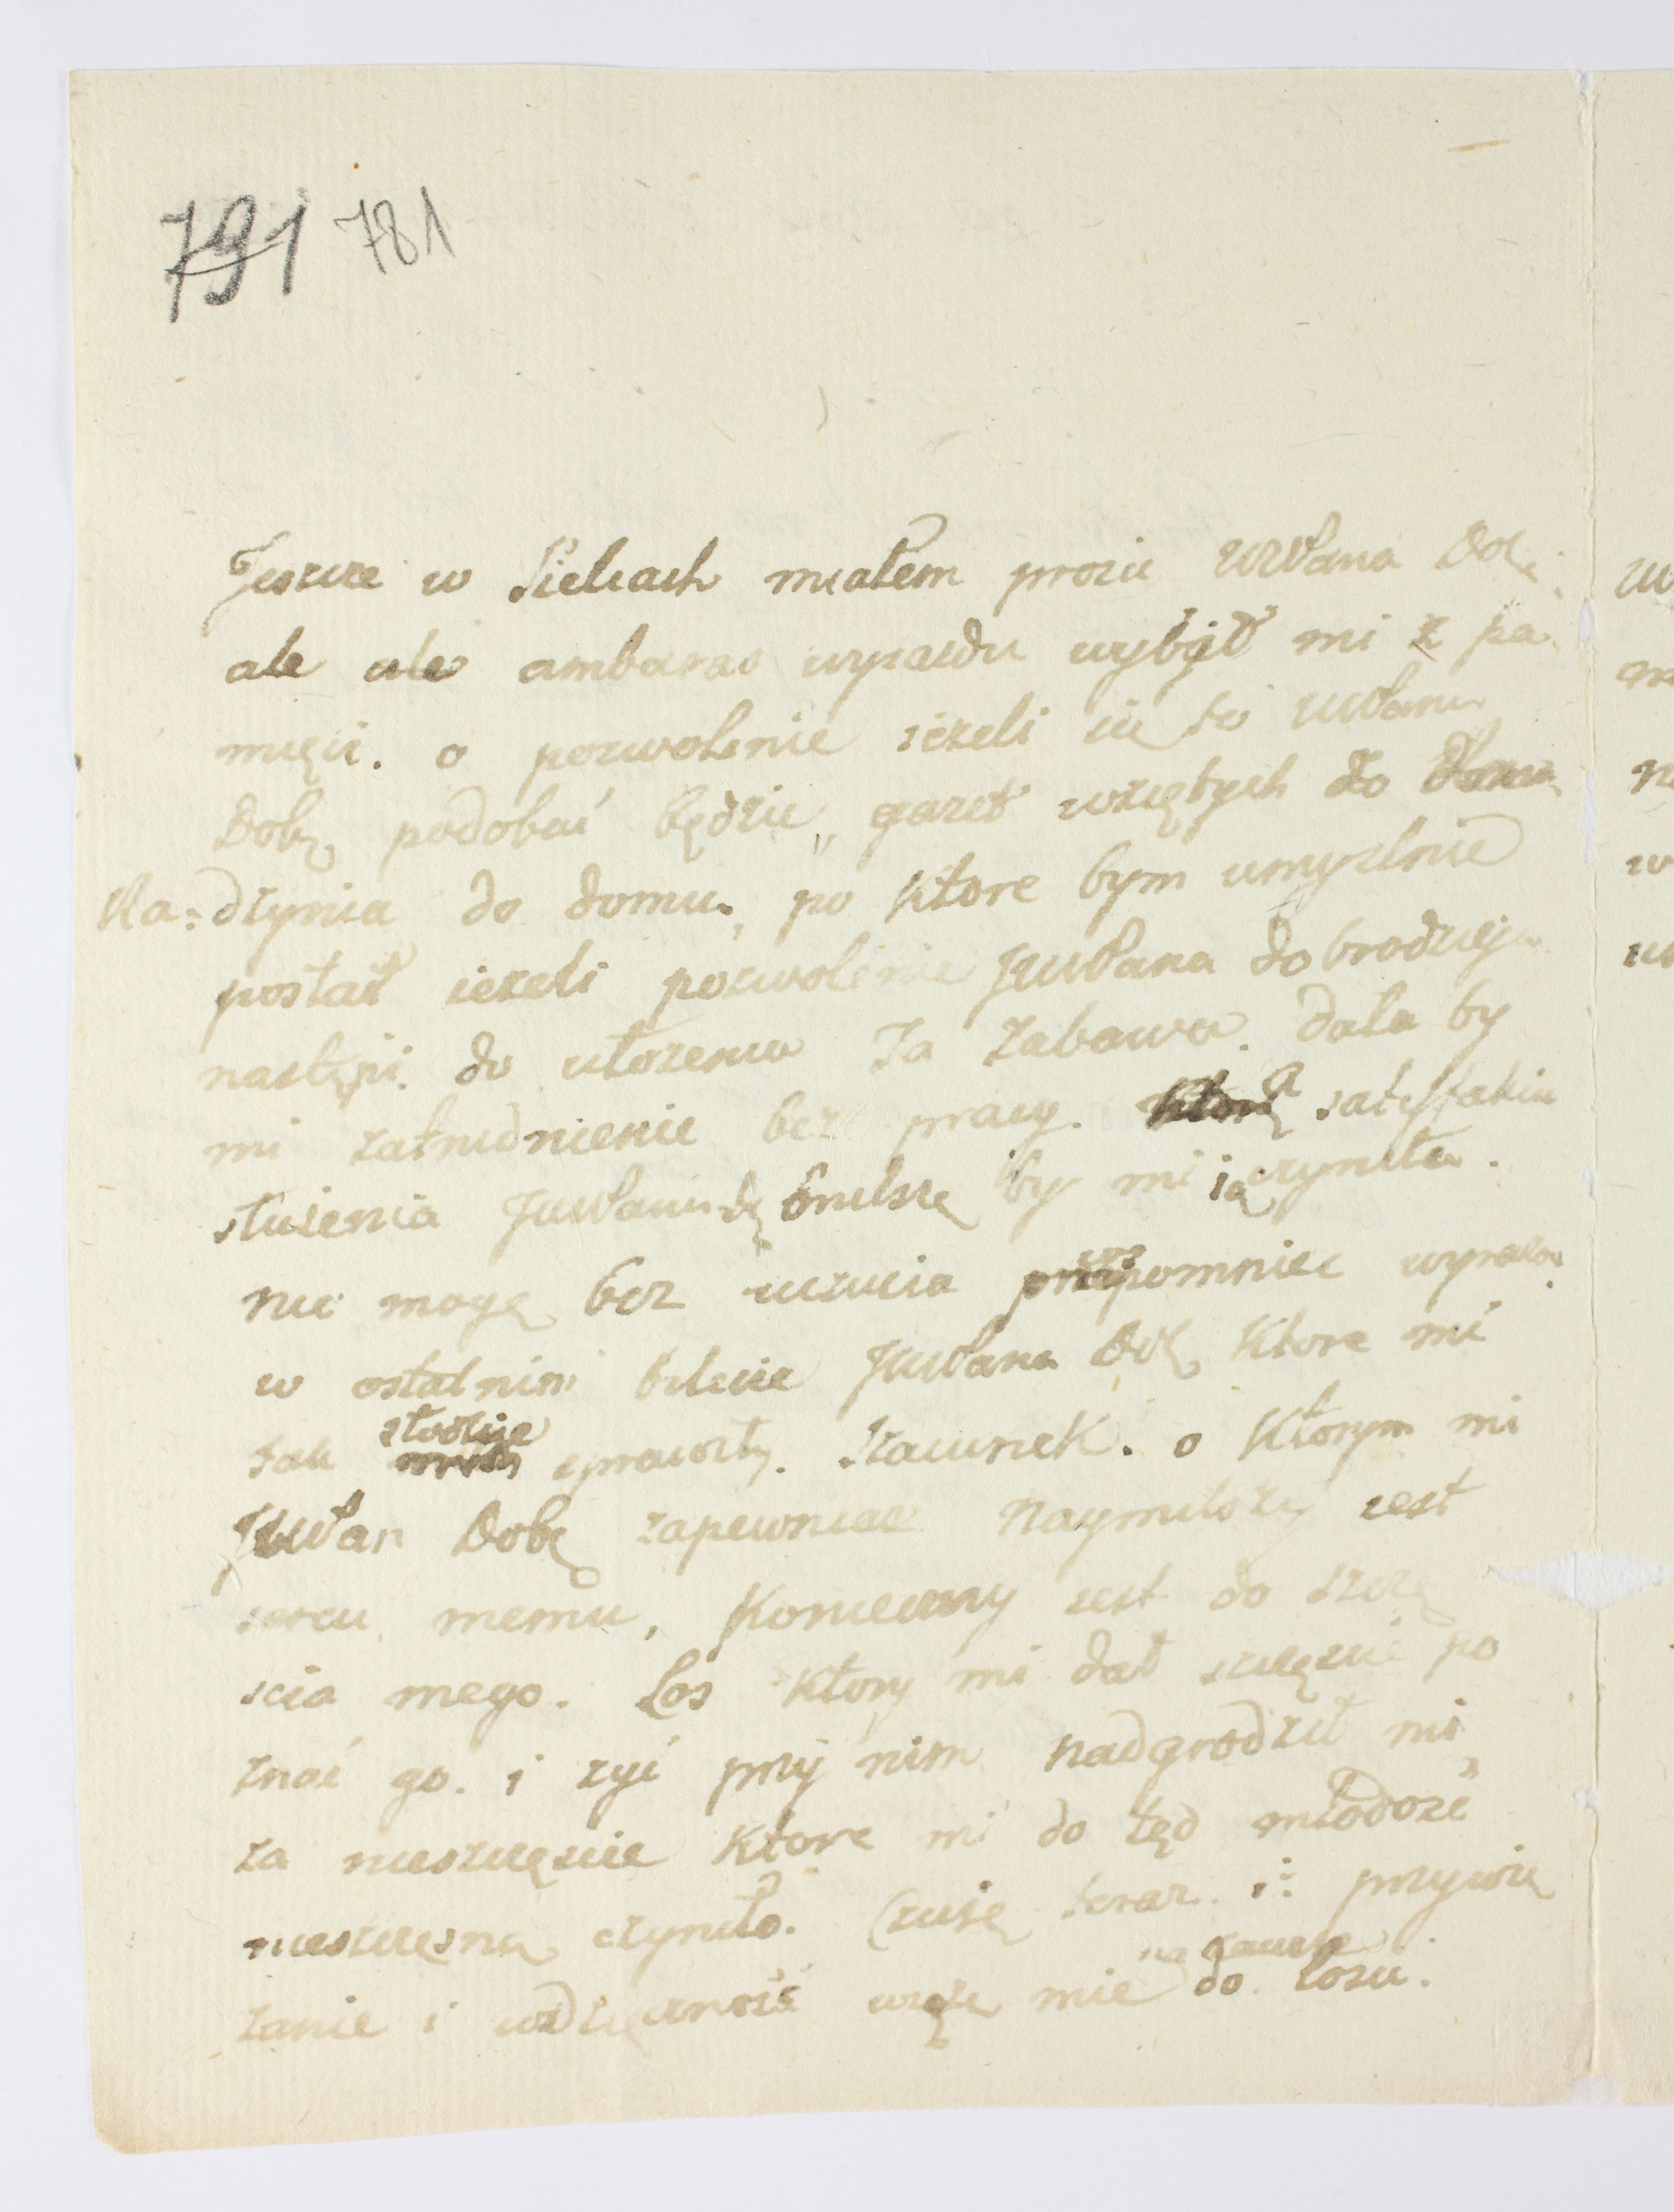 791 781
Jeszcze w Sielcach miałem prosic WWPana Dob
ale ale ambaras wyiazdu wybył mi z pa
mięci. o pozwolenie ieżeli się to WWPanu
Dob podobać będzie gazet wziętych do
Ra:dzynia do domu, po ktore bym umyslnie
posłał ieżeli pozwolenie JWWPana dobrodzieja
nastąpi. do ułożenia Ta zabawa. dała by
mi zatrudnienie bez pracy. a satysfakcia
służenia JWWPanu milszą by mi ią czyniła.
nie mogę bez uczucia wspomniec wyrazow
w ostatnim bilecie JWWPana Dob ktore mi
tak słodkie Szacunek. o ktorym mi
JWWPan Dobę zapewniac Naymilszy iest
sercu memu, Konieczny iest do szczę
scia mego. Los ktory mi dał szczęscie po
znać go. i zyć przy nim nadgrodził mi
za nieszczęscie ktore mi do tąd młodość
nieszczęsną czyniło. Czuię teraz iż przywią
zanie i wdzięcznosć wiąże mie na zawsze do Losu.